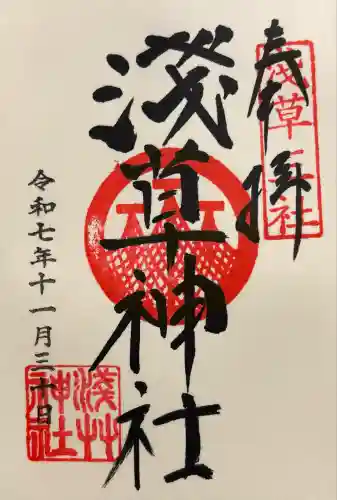 奉拝
淺草神社
令和七年十一月三十日
淺草
神社